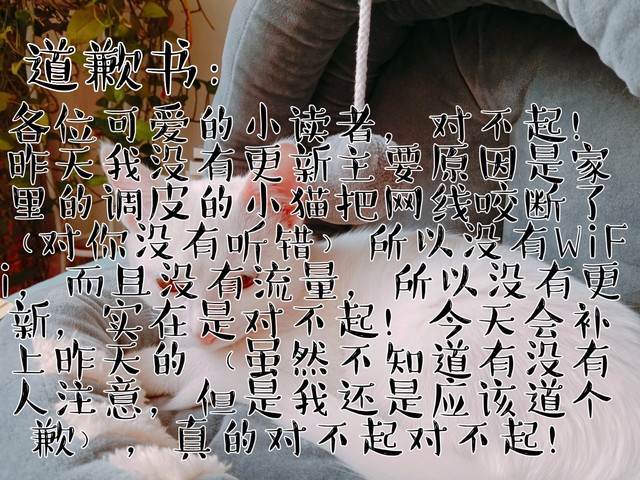 道歉书：
各位可爱的小读者，对不起！
昨天我没有更新主要原因是家
里的调皮的小猫把网线咬断了
（对你没有听错）所以没有WiF
i，而且没有流量，所以没有更
新，实在是对不起！今天会补
上昨天的（虽然不知道有没有
人注意，但是我还是应该道个
歉），真的对不起对不起！